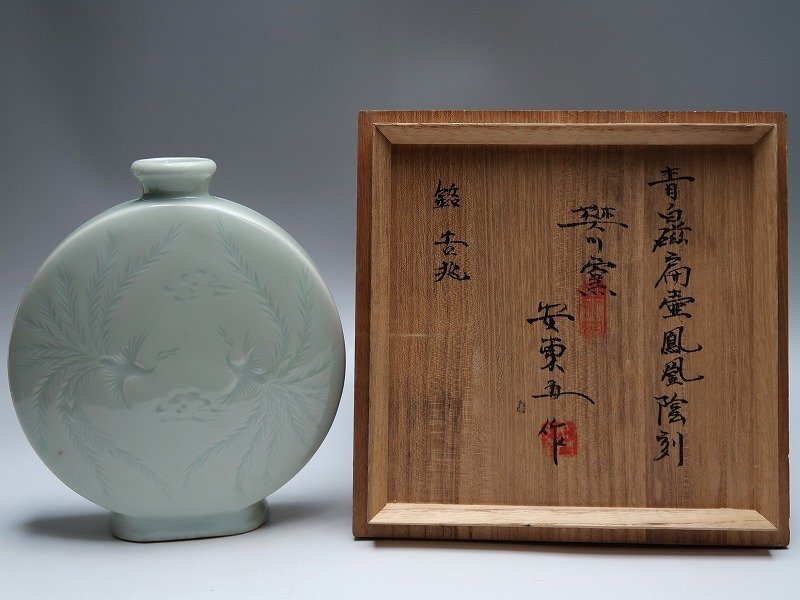 青白磁扁壷鳳凰陰刻
樊川窯
安東五作
銘 吉兆